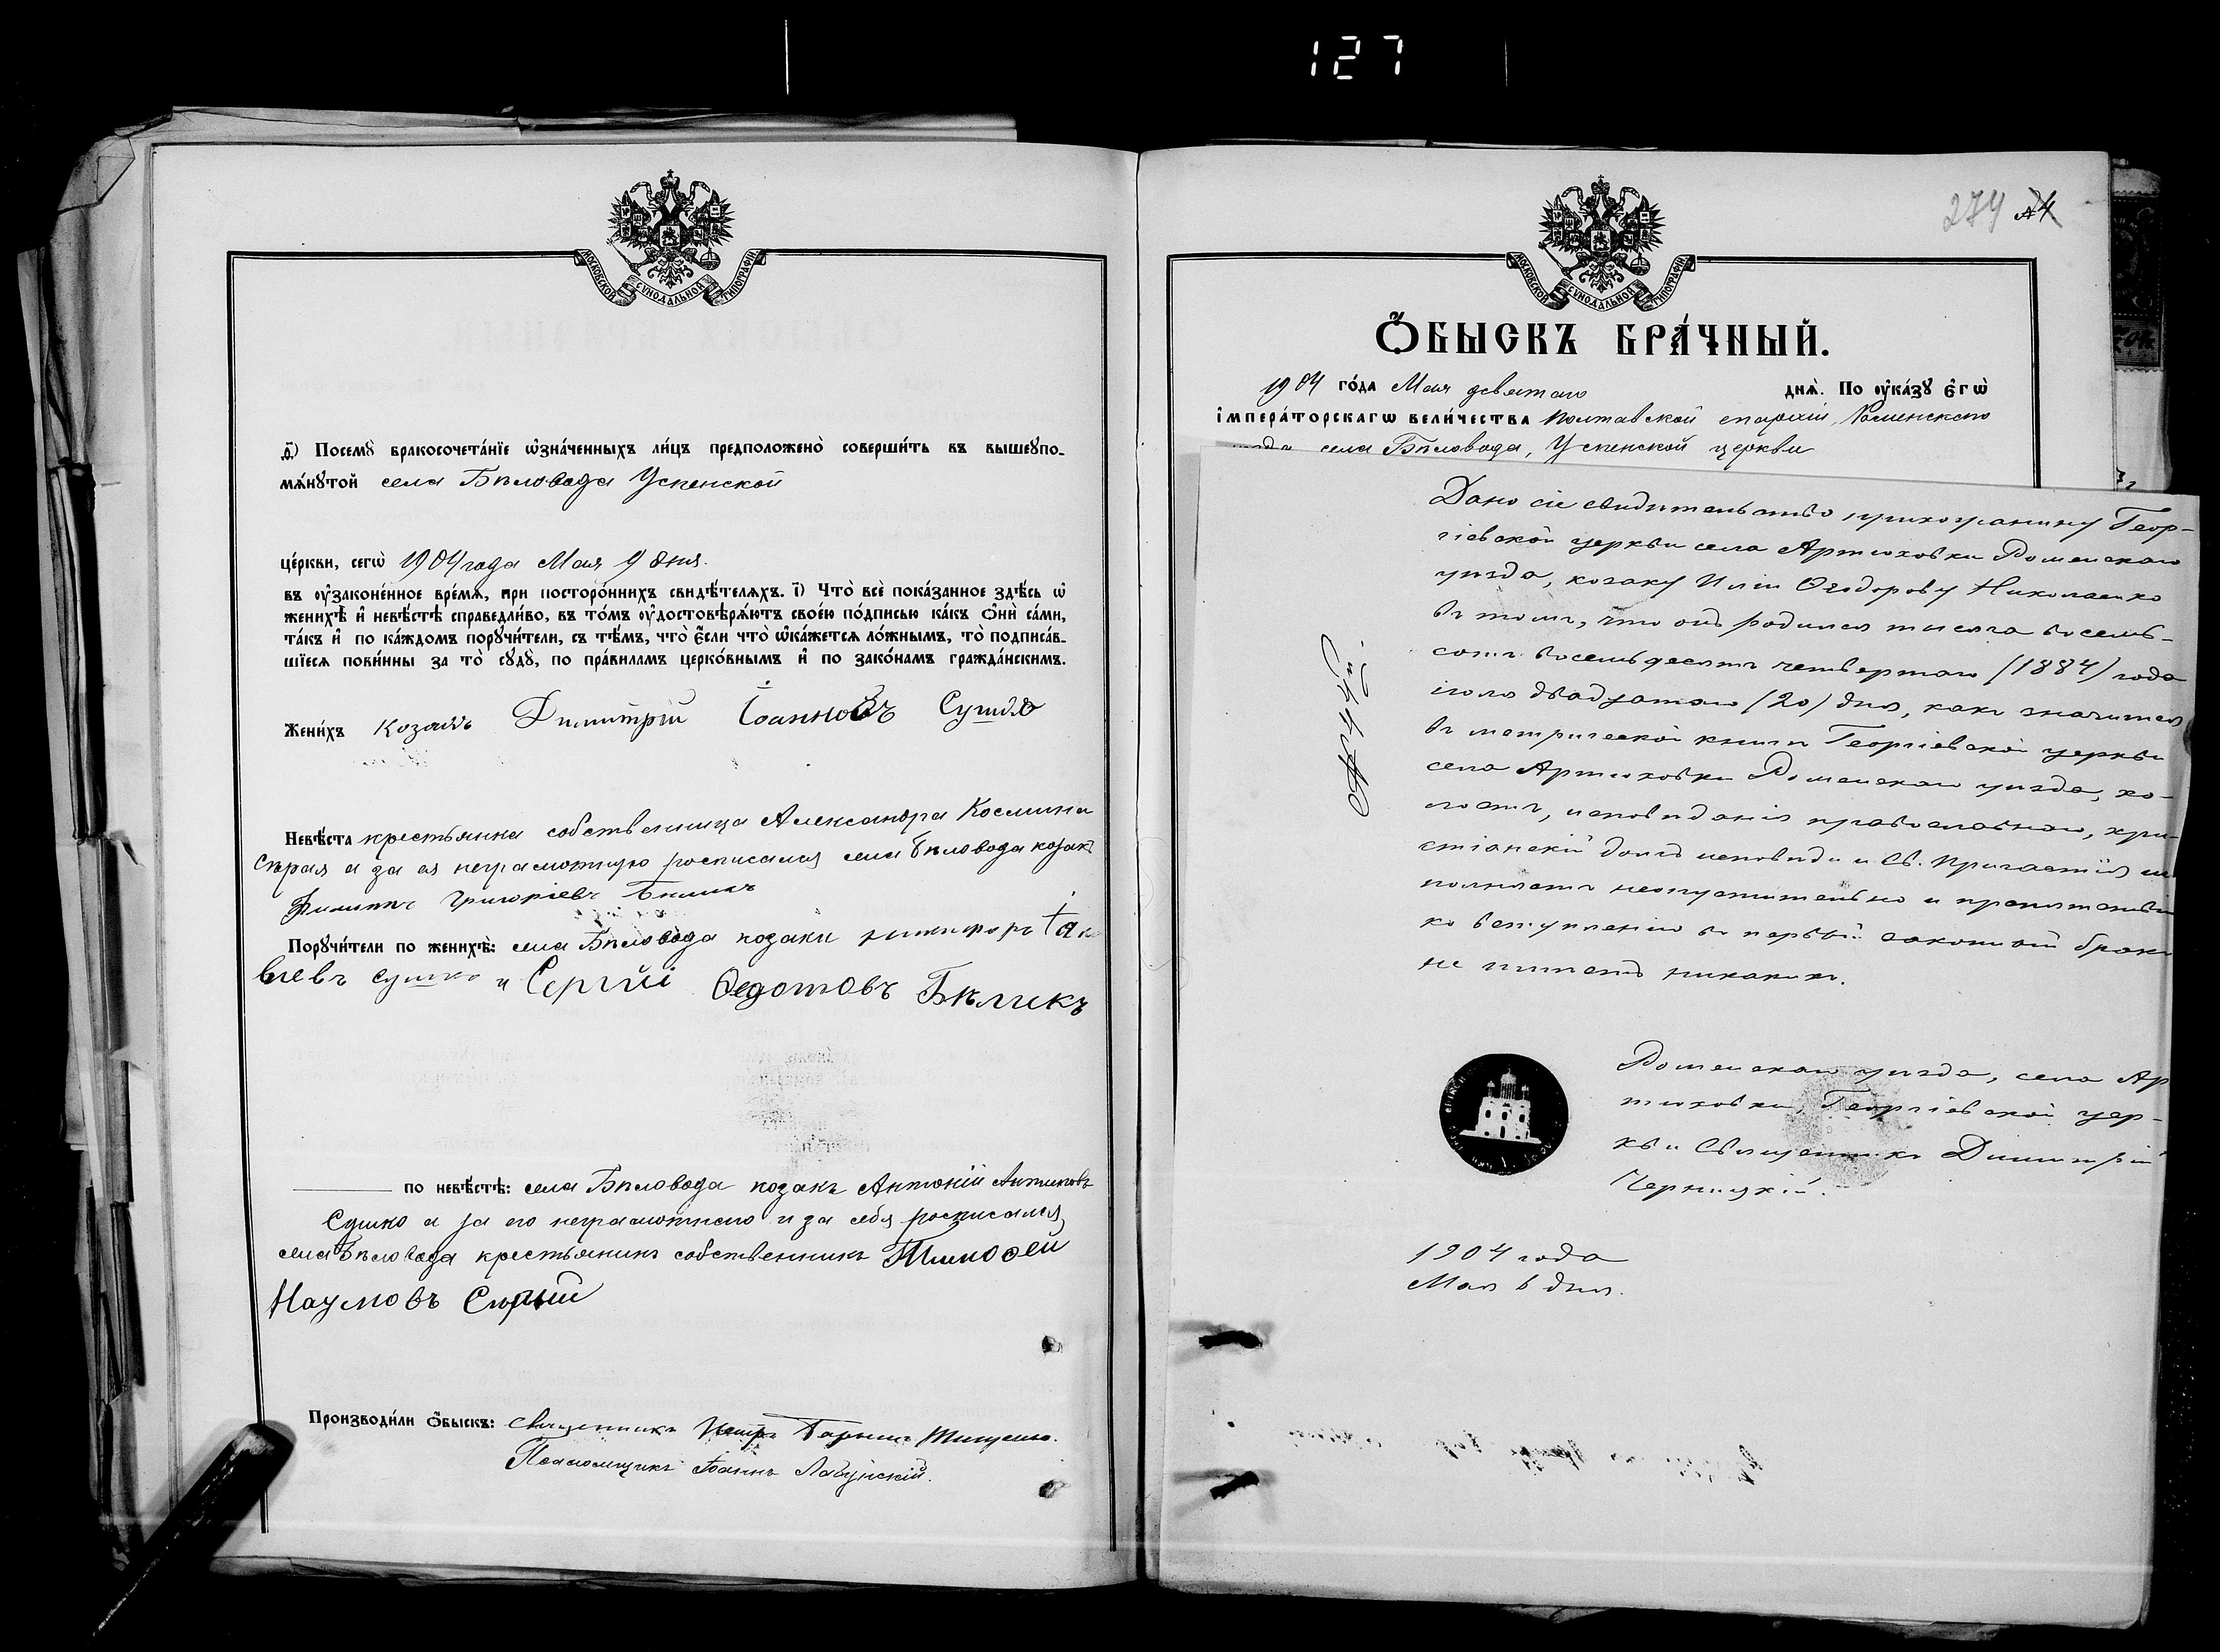 127
МОСКОВСКОЙ СѴНОДАЛЬНОЙ ТИПОГРАФІИ
д҃) Посемꙋ̀ бракосочета́нїе ѡ҆зна́ченныхъ ли́цъ предположено̀ соверши́ть въ вышеꙋпо-
мѧ́нꙋтой села Бѣловода Успенской
це́ркви, сегѡ̀ 1904 года Мая 9 дня.
въ ᲂу҆зако́ненное вре́мѧ, при посторо́ннихъ свидѣ́телѧхъ. і҃) Что̀ всѐ пока́занное здѣ́сь ѡ҆
женихѣ̀ и҆ невѣ́стѣ справедли́во, въ то́мъ ᲂу҆достовѣрѧ́ютъ свое́ю по́дписью ка́къ ѻ҆нѝ са́ми,
та́къ и҆ по ка́ждомъ порꙋчи́тели, съ тѣ́мъ, что̀ є҆́сли что̀ ѡ҆ка́жетсѧ ло́жнымъ, то̀ подписа́в-
шїесѧ пови́нны за то̀ сꙋдꙋ̀, по пра́виламъ церко́внымъ и҆ по зако́намъ гражда́нскимъ.
Жени́хъ козакъ Димитрій Іоанновъ Сушко
Невѣ́ста крестьянка собственница Александра Космина
Сѣрая а за ея неграмотную росписался села Бѣловода козакъ
Филиппъ Григоріевъ Бѣликъ
Порꙋчи́тели по женихѣ̀: села Бѣловода козаки Никифоръ Іак
влевъ Сушко и Сергій Ѳедотовъ Бѣликъ
по невѣ́стѣ: села Бѣловода козакъ Антоній Антиповъ
Сушко а за его неграмотнаго и за себя росписался
села Бѣловода крестьянинъ собственникъ Тимоѳей
Наумовъ Сѣрый
Производи́ли ѻ҆́быскъ: Священникъ Петръ
Псаломщикъ Іоаннъ
274
МОСКОВСКОЙ СѴНОДАЛЬНОЙ ТИПОГРАФІИ
Ѻ҆́БЫСКЪ БРА́ЧНЫЙ.
1904 го́да Мая девятаго днѧ̀. По ᲂу҆ка́зꙋ є҆гѡ̀
і҆мпера́торскагѡ вели́чества Полтавской епархіи, Роменского
села Бѣловода, Успенской церкви
Дано сіе свидѣтельство прихожанину Геор-
гіевской церкви села Артюховки Роменскаго
уѣзда, козаку Иліи Ѳеодорову Николаенко
въ томъ, что онъ родился тысяча восемь-
сотъ восемьдесятъ четвертаго (1884) года
іюля двадцатаго (20) дня, какъ значится
въ метрической книгѣ Георгіевской церкви
села Артюховки Роменскаго уѣзда, хо-
лостъ, исповѣданія православнаго, хри-
стіанскій долгъ исповѣди и Св. Причастія ис
полняетъ неопустительно и препятствій
ко вступленію въ первый законный бракъ
не имѣетъ никакихъ.
Роменскаго уѣзда, села Ар
тюховки, Георгіевской цер-
кви Священникъ Димитрій
Черницкій.
1904 года
Мая 6 дня.